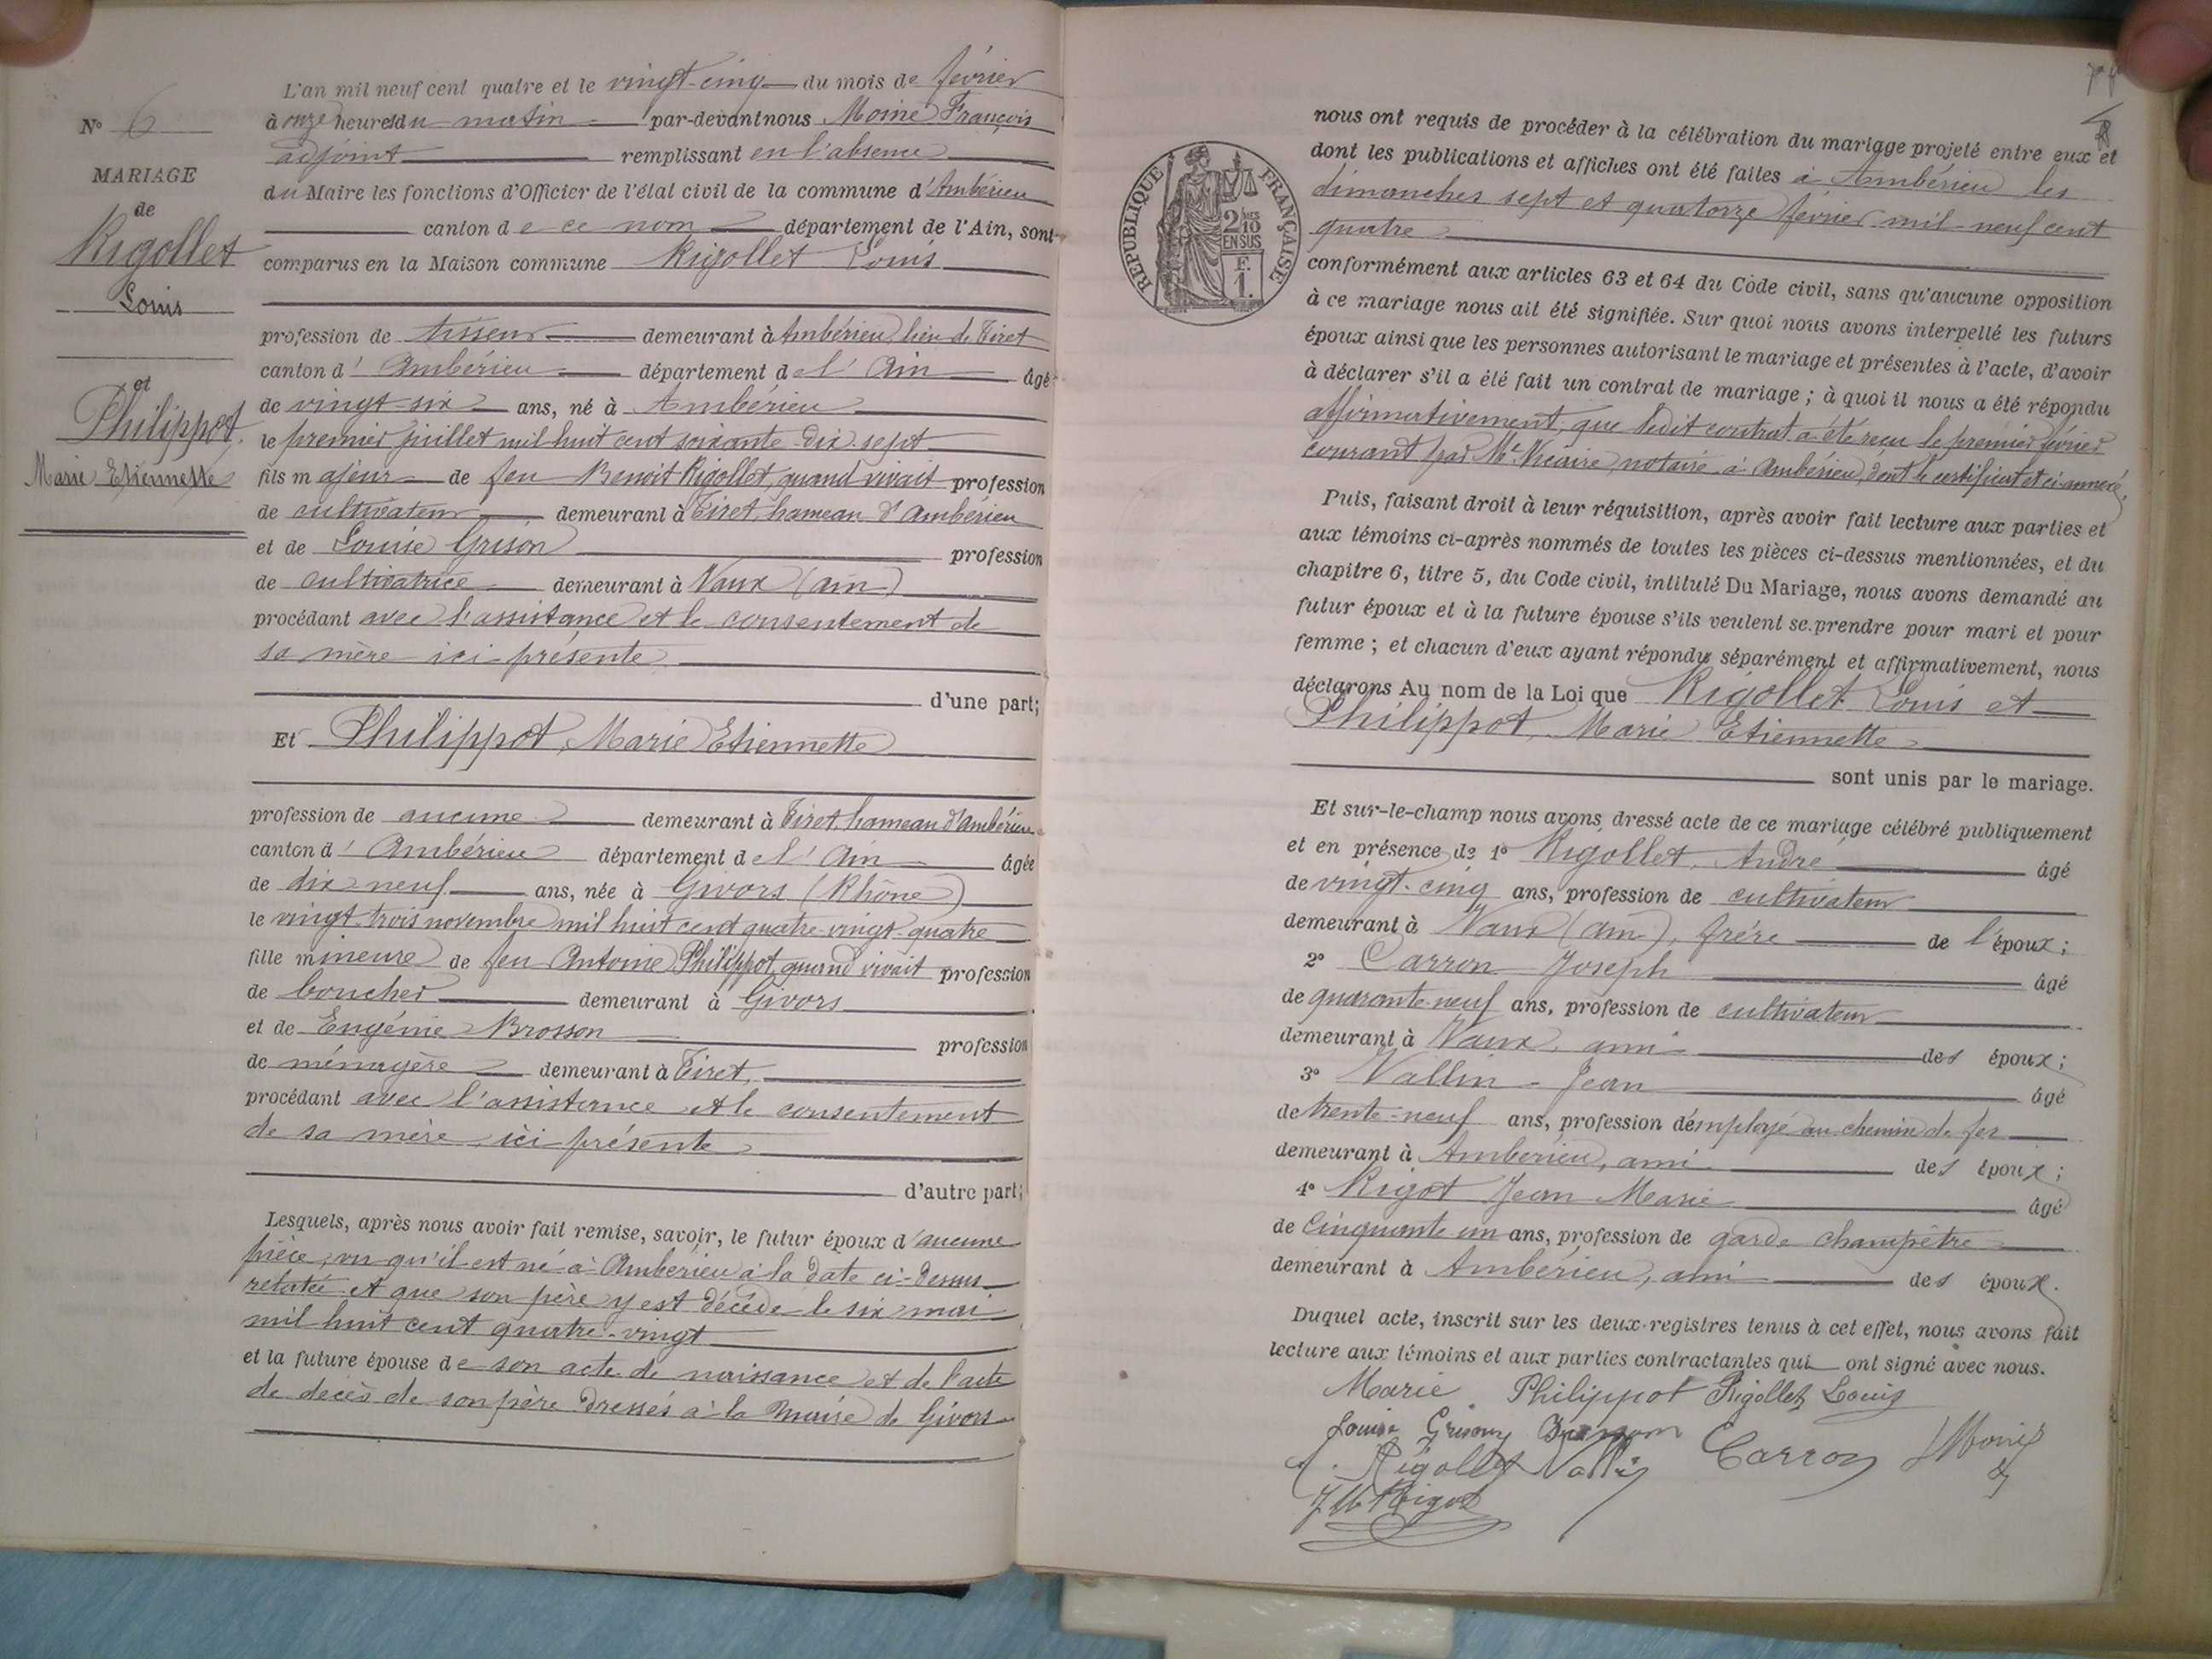 L'an mil neuf cent quatre et le vingt-cinq du mois de février
à onze heures du matin par-devant nous Moine François
adjoint remplissant en l'absence
du Maire les fonctions d'Officier de l'état civil de la commune d'Ambérieu
canton de ce nom département de l'Ain, sont
comparus en la Maison commune Rigollet Louis
profession de tisseur demeurant à Ambérieu, lieu de Tiret
canton d'Ambérieu département de l'Ain âgé
de vingt-six ans, né à Ambérieu
le premier juillet mil huit cent soixante-dix-sept
fils majeur de feu Benoit Rigollet, quand vivait profession
de cultivateur demeurant à Tiret, hameau d'Ambérieu
et de Louise Grison profession
de cultivatrice demeurant à Vaux (Ain)
procédant avec l'assistance et le consentement de
sa mère ici présente
d'une part;
Et Philippot, Marie Etiennette
profession de aucune demeurant à Tiret, hameau d'Ambérieu
canton d'Ambérieu département de l'Ain âgée
de dix-neuf ans, née à Givors (Rhône)
le vingt-trois novembre mil huit cent quatre-vingt-quatre
fille mineure de feu Antoine Philippot, quand vivait profession
de boucher demeurant à Givors
et de Eugénie Brosson profession
de ménagère demeurant à Tiret,
procédant avec l'assistance et le consentement
de sa mère ici présente
d'autre part;
Lesquels, après nous avoir fait remise, savoir, le futur époux d'aucune
pièce, vu qu'il est né à Ambérieu à la date ci-dessus
relatée et que son père y est décédé le six mai
mil huit cent quatre-vingt
et la future épouse de son acte de naissance et de l'acte
de décès de son père dressés à la mairie de Givors
N° 6
MARIAGE
de
Rigollet
Louis
et
Philippot,
Marie Etiennette
nous ont requis de procéder à la célébration du mariage projeté entre eux et
dont les publications et affiches ont été faites à Ambérieu les
dimanches sept et quatorze février mil-neuf cent
quatre
conformément aux articles 63 et 64 du Code civil, sans qu'aucune opposition
à ce mariage nous ait été signifiée. Sur quoi nous avons interpellé les futurs
époux ainsi que les personnes autorisant le mariage et présentes à l'acte, d'avoir
à déclarer s'il a été fait un contrat de mariage; à quoi il nous a été répondu
affirmativement, que ledit contrat a été reçu le premier février
courant par Me Vicaire notaire à Ambérieu, dont le certificat est ci-annexé.
Puis, faisant droit à leur réquisition, après avoir fait lecture aux parties et
aux témoins ci-après nommés de toutes les pièces ci-dessus mentionnées, et du
chapitre 6, titre 5, du Code civil, intitulé Du Mariage, nous avons demandé au
futur époux et à la future épouse s'ils veulent se prendre pour mari et pour
femme; et chacun d'eux ayant répondu séparément et affirmativement, nous
déclarons Au nom de la Loi que Rigollet Louis et
Philippot, Marie Etiennette
sont unis par le mariage.
Et sur-le-champ nous avons dressé acte de ce mariage célébré publiquement
et en présence de 1° Rigollet, André âgé
de vingt-cinq ans, profession de cultivateur
demeurant à Vaux (Ain), frère de l'époux;
2° Carron Joseph âgé
de quarante-neuf ans, profession de cultivateur
demeurant à Vaux, ami des époux;
3° Vallin Jean âgé
de trente-neuf ans, profession d'employé au chemin de fer
demeurant à Ambérieu, ami des époux;
4° Rigot Jean Marie âgé
de Cinquante un ans, profession de garde champêtre
demeurant à Ambérieu, ami des époux.
Duquel acte, inscrit sur les deux registres tenus à cet effet, nous avons fait
lecture aux témoins et aux parties contractantes qui ont signé avec nous.
Marie Philippot Rigollet Louis
Louise Grison Brosson Carron Moine
Rigollet Vallin
J M Rigot
RÉPUBLIQUE FRANÇAISE
2/10 EN SUS
F. 1.